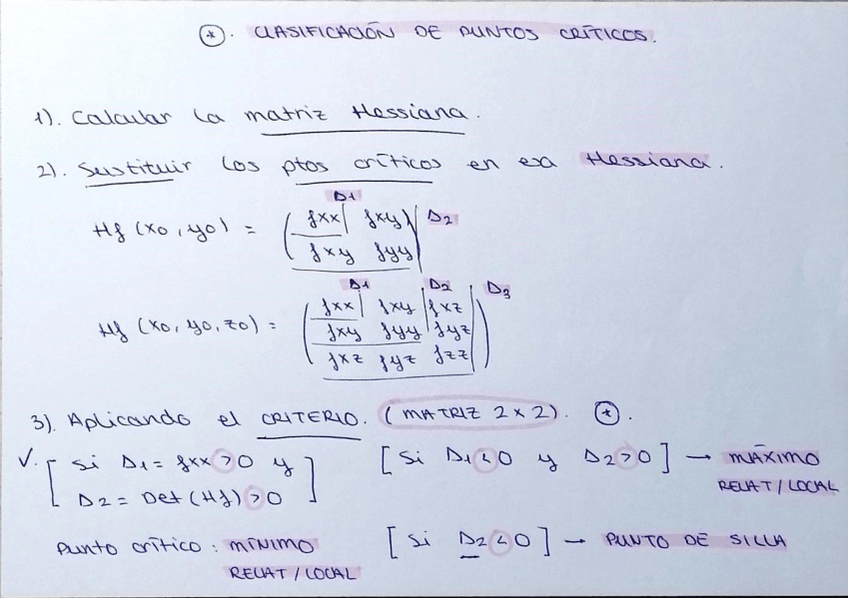 *. CLASIFICACIÓN DE PUNTOS CRÍTICOS.
1). Calcular la matriz Hessiana.
2). Sustituir los ptos críticos en esa Hessiana.
D1
Hf (x0, y0) = ( fxx fxy ) D2
fxy fyy
D1 D2 D3
Hf (x0, y0, z0) = ( fxx fxy fxz )
fxy fyy fyz
fxz fyz fzz
3). Aplicando el CRITERIO. (MATRIZ 2x2). *.
✓. [ Si D1 = fxx > 0 y
D2 = Det (Hf) > 0 ]
Punto crítico: MÍNIMO
RELAT / LOCAL
[ Si D1 < 0 y D2 > 0 ] → MÁXIMO
RELAT / LOCAL
[ Si D2 < 0 ] → PUNTO DE SILLA